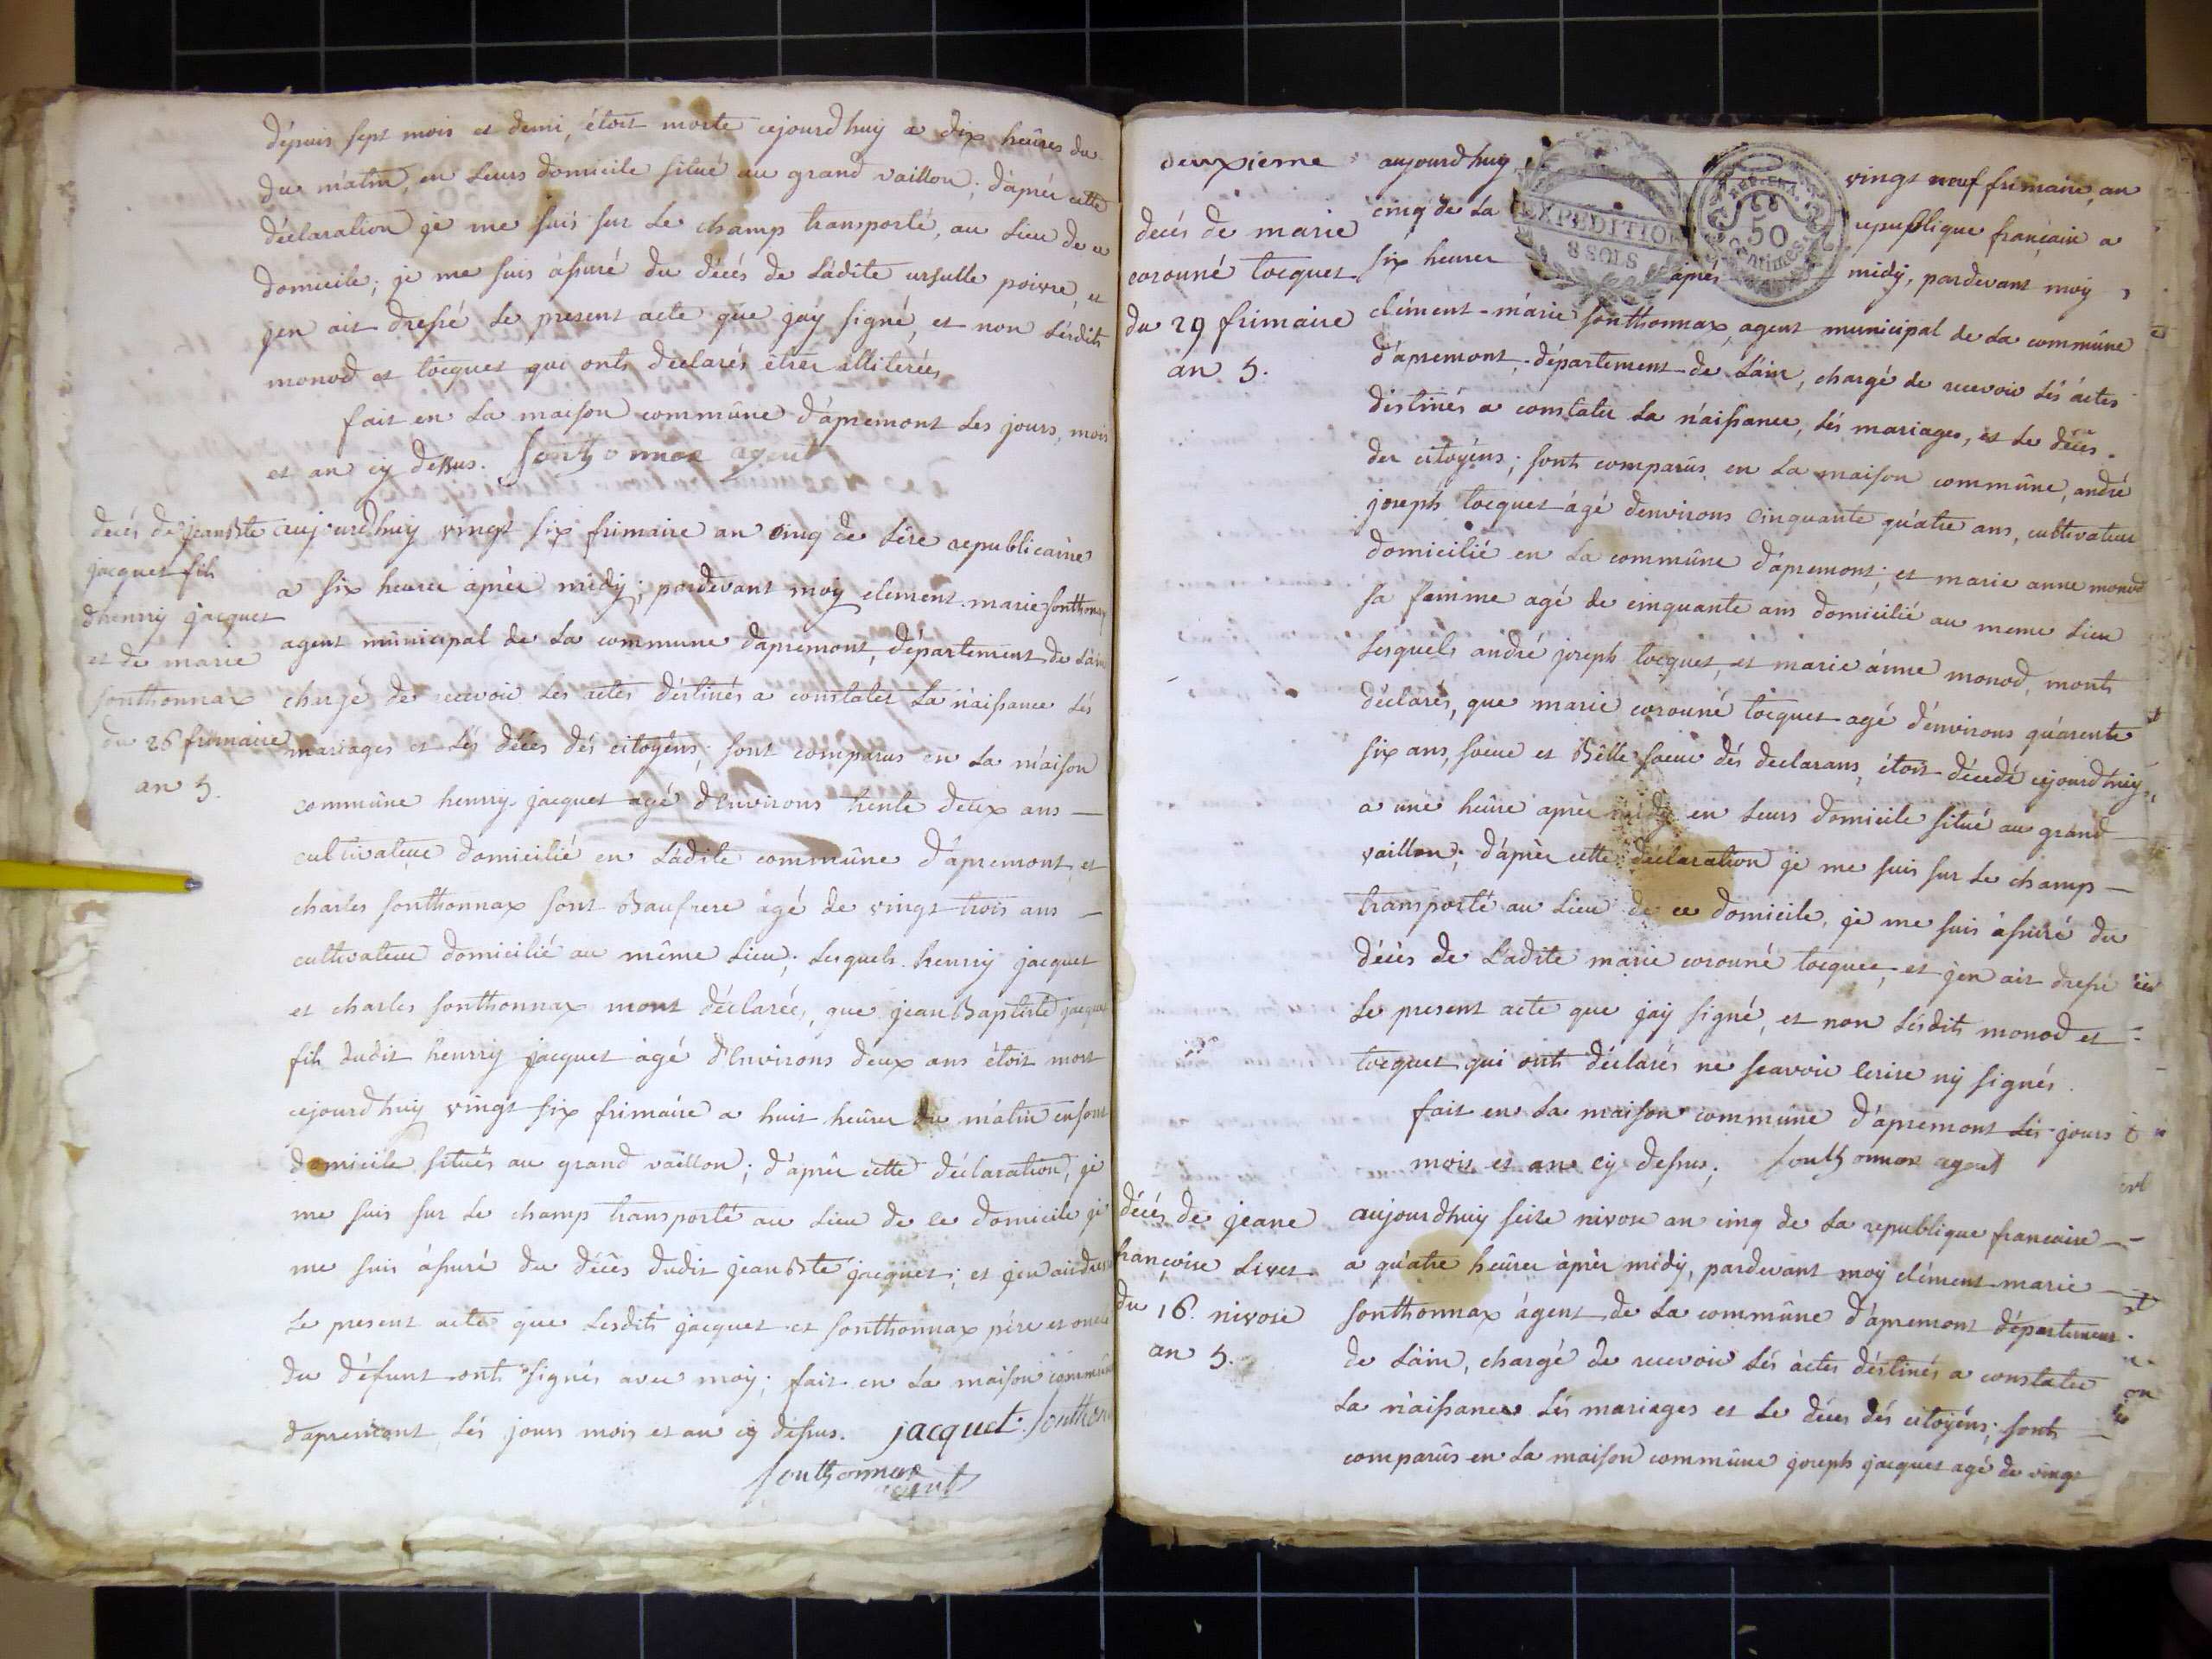 dépuis sept mois et demi, étoit morte cejourdhuy a dix heûres du
du mátin, en Leurs domicile situé au grand vaillon; dáprér cette
déclaration je me suis sur Le champ transporté, au Lieu de ce
domicile; je me suis ássuré du décés de Ládite ursulle poivre, et
jen ait dressé Le present acte que jáy signé, et non Lésdits
monod et tocquet qui onts declarés étrer illiterées
fait en La maison commûne dápremont Les jours, mois
et an cy dessus. sonthonnax agent
decés de jean Bte
jacquet fils
dhenry jacquet
et de marie
sonthonnax
du 26 frimaire
an 5.
aujourdhuy vingt six frimaire an cinq de Lére republicaine
a six heures áprèr midy; pardevant moy clément marie sonthonax
agent municipal de La commune dapremont, département de Láin
chargé de recevoir Les actes déstinés a constater La náissance Lés
mariages et Lés décés dés citoyéns; sont comparus en La máison
commûne henry jacquet agé d'Environs trente deux ans —
cultivateur domicilié en Ládite commûne dápremont, et
charles sonthonnax sont Baufrere ágé de vingt trois ans —
cultivateur domicilié au même Lieu; Lesquels henry jacquet
et charles sonthonnax mont déclarées, que jean Baptiste jacquet
fils dudit henrry jacquet àgé d'Environs deux ans étoit mort
cejourdhuy vingt six frimáire a huit heûrer du mátin en sont
domicile situés au grand vaillon; d'áprér cette déclaration, je
me suis sur Le champ transporté au Lieu de ce domicile je
me suis ássuré du décés dudit jean Bte jacquet; et jen ait dressé
Le present acte que Lesdits jacquet et sonthonnax père et oncle
du défunt onts signés avec moy; fait en La maison commûne
dapremont Lés jours mois et an cy déssus. jacquet. sonthon
sonthonnax
agent
deuxieme
decés de marie
corouné tocquet
du 29 frimaire
an 5.
EXPEDITION
8 SOLS
50
centimes
aujourdhuy vingt neuf frimaire, an
cinq de La republique françaiie a
six heures áprés midy, pardevant moy
clément-márie sonthonnax, agent municipal de La commûne
d'ápremont, département de Láin, chargé de recevoir Lés áctes
déstinés a constater La náissance, Lés mariages, et Le décès.
des citoyéns; sonts comparûs en La maison commûne, andré
joseph tocquet ágé denvirons cinquante quátre ans, cultivateur
domicilié en La commûne d'ápremont; et marie anne monod
sa femme agé de cinquante ans domicilié au meme Lieu
Lesquels andré joseph tocquet, et marie ánne monod, monts
déclarés, que marie corouné tocquet agé d'énvirons quárente
six ans, soeur et Bêlle soeur dés declarans, étoit décedé cejourdhuy
a une heûre aprér midy en Leurs domicile situé au grand
vaillon; d'áprèr cette déclaration je me suis sur Le champ —
transporté au Lieu de ce domicile, je me suis ássuré du
décès de Ladite marie corouné tocquet, et jen ait dressé
Le present acte que jáy signé, et non Lésdits monod et
tocquet qui onts déclarés ne scavoir Ecrire ny signés.
fait en La maison commune d'ápremont Lés jours
mois et an cy dessus; sonthonnax agent
décés de jeane
françoise Livet
du 16 nivose
an 5.
aujourdhuy seize nivose an cinq de La republique francaise —
a quátre heûrer áprèr midy, pardevant moy clément marie
sonthonnax ágent de La commûne d'ápremont département
de Láin, chargé de recevoir Lés áctes déstinés a constater
La náissance Lés mariages et Le déces dés citoyéns; sonts
comparûs en La maison commûne joseph jacquet agé de vingt